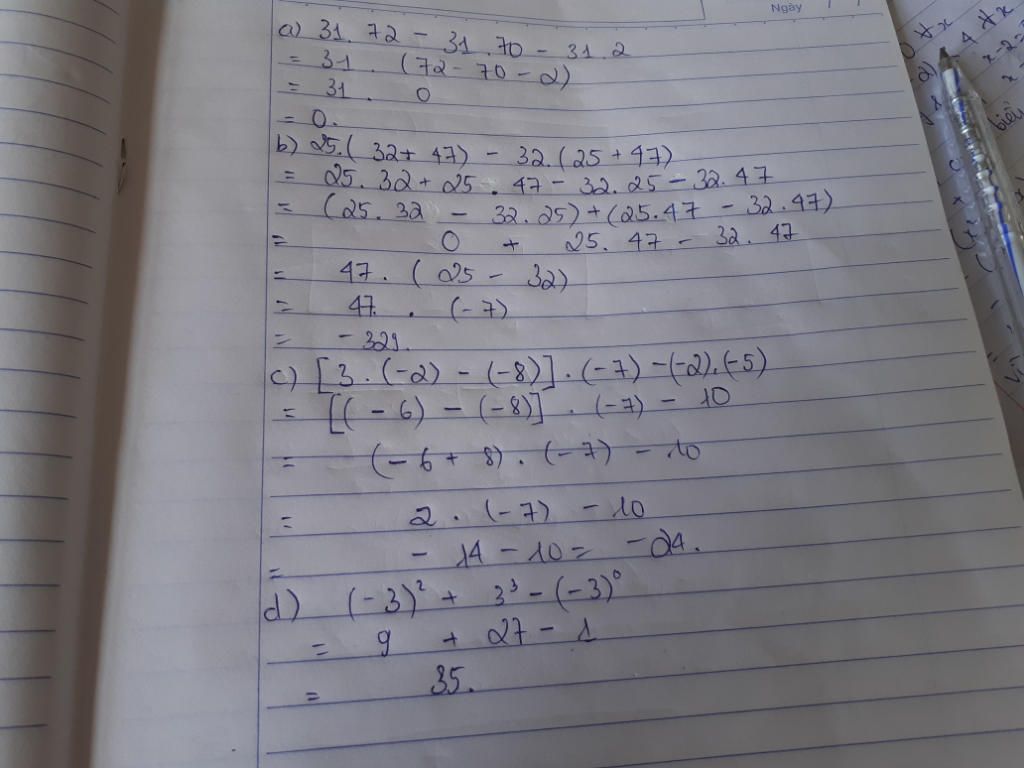 Ngày / /
a) 31. 72 - 31 . 70 - 31 . 2
= 31 . (72 - 70 - 2)
= 31 . 0
= 0.
b) 25.( 32 + 47) - 32. (25 + 47)
= 25. 32 + 25 . 47 - 32. 25 - 32. 47
= (25. 32 - 32. 25) + (25. 47 - 32. 47)
= 0 + 25. 47 - 32. 47
= 47 . ( 25 - 32)
= 47. . (-7)
= - 329.
c) [3 . (-2) - (-8)] . (-7) - (-2). (-5)
= [(-6) - (-8)] . (-7) - 10
= (-6 + 8) . (-7) - 10
= 2 . (-7) - 10
= - 14 - 10 = - 24.
d) (-3)² + 3³ - (-3)⁰
= 9 + 27 - 1
= 35.